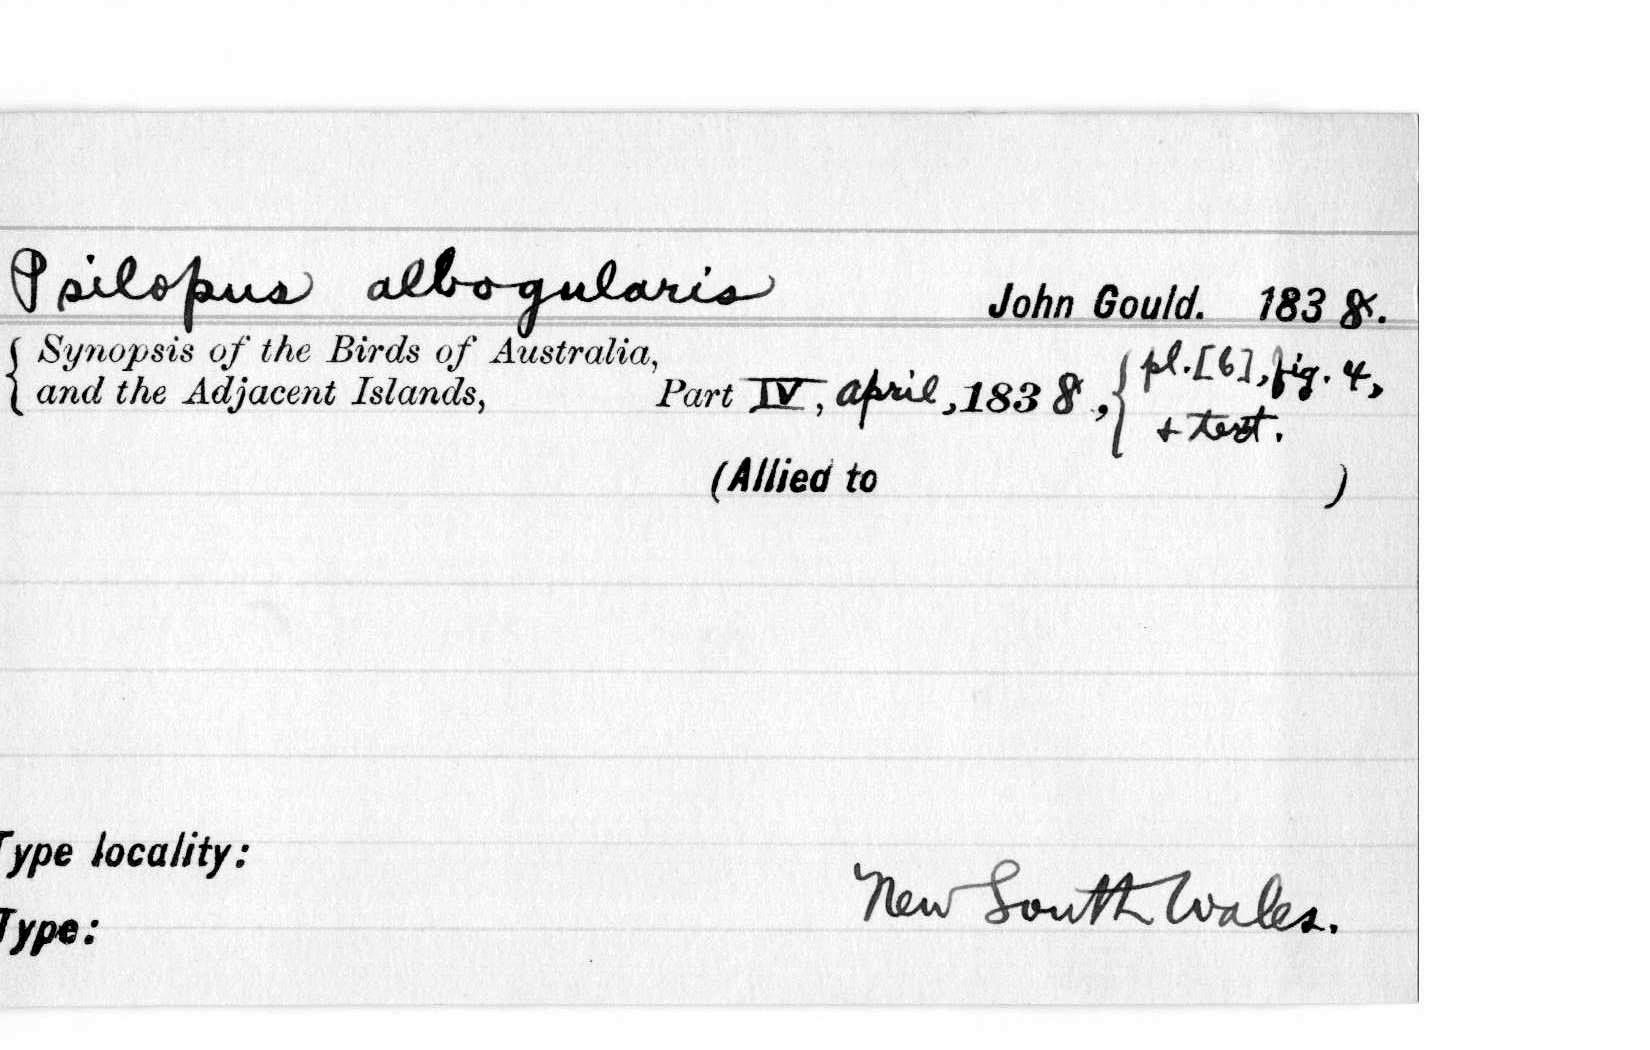 Psilopus albogularis John Gould. 1838.
{ Synopsis of the Birds of Australia,
and the Adjacent Islands, Part IV, April, 1838, { pl. [6], fig. 4,
+ text.
(Allied to )
Type locality:
New South Wales.
Type: